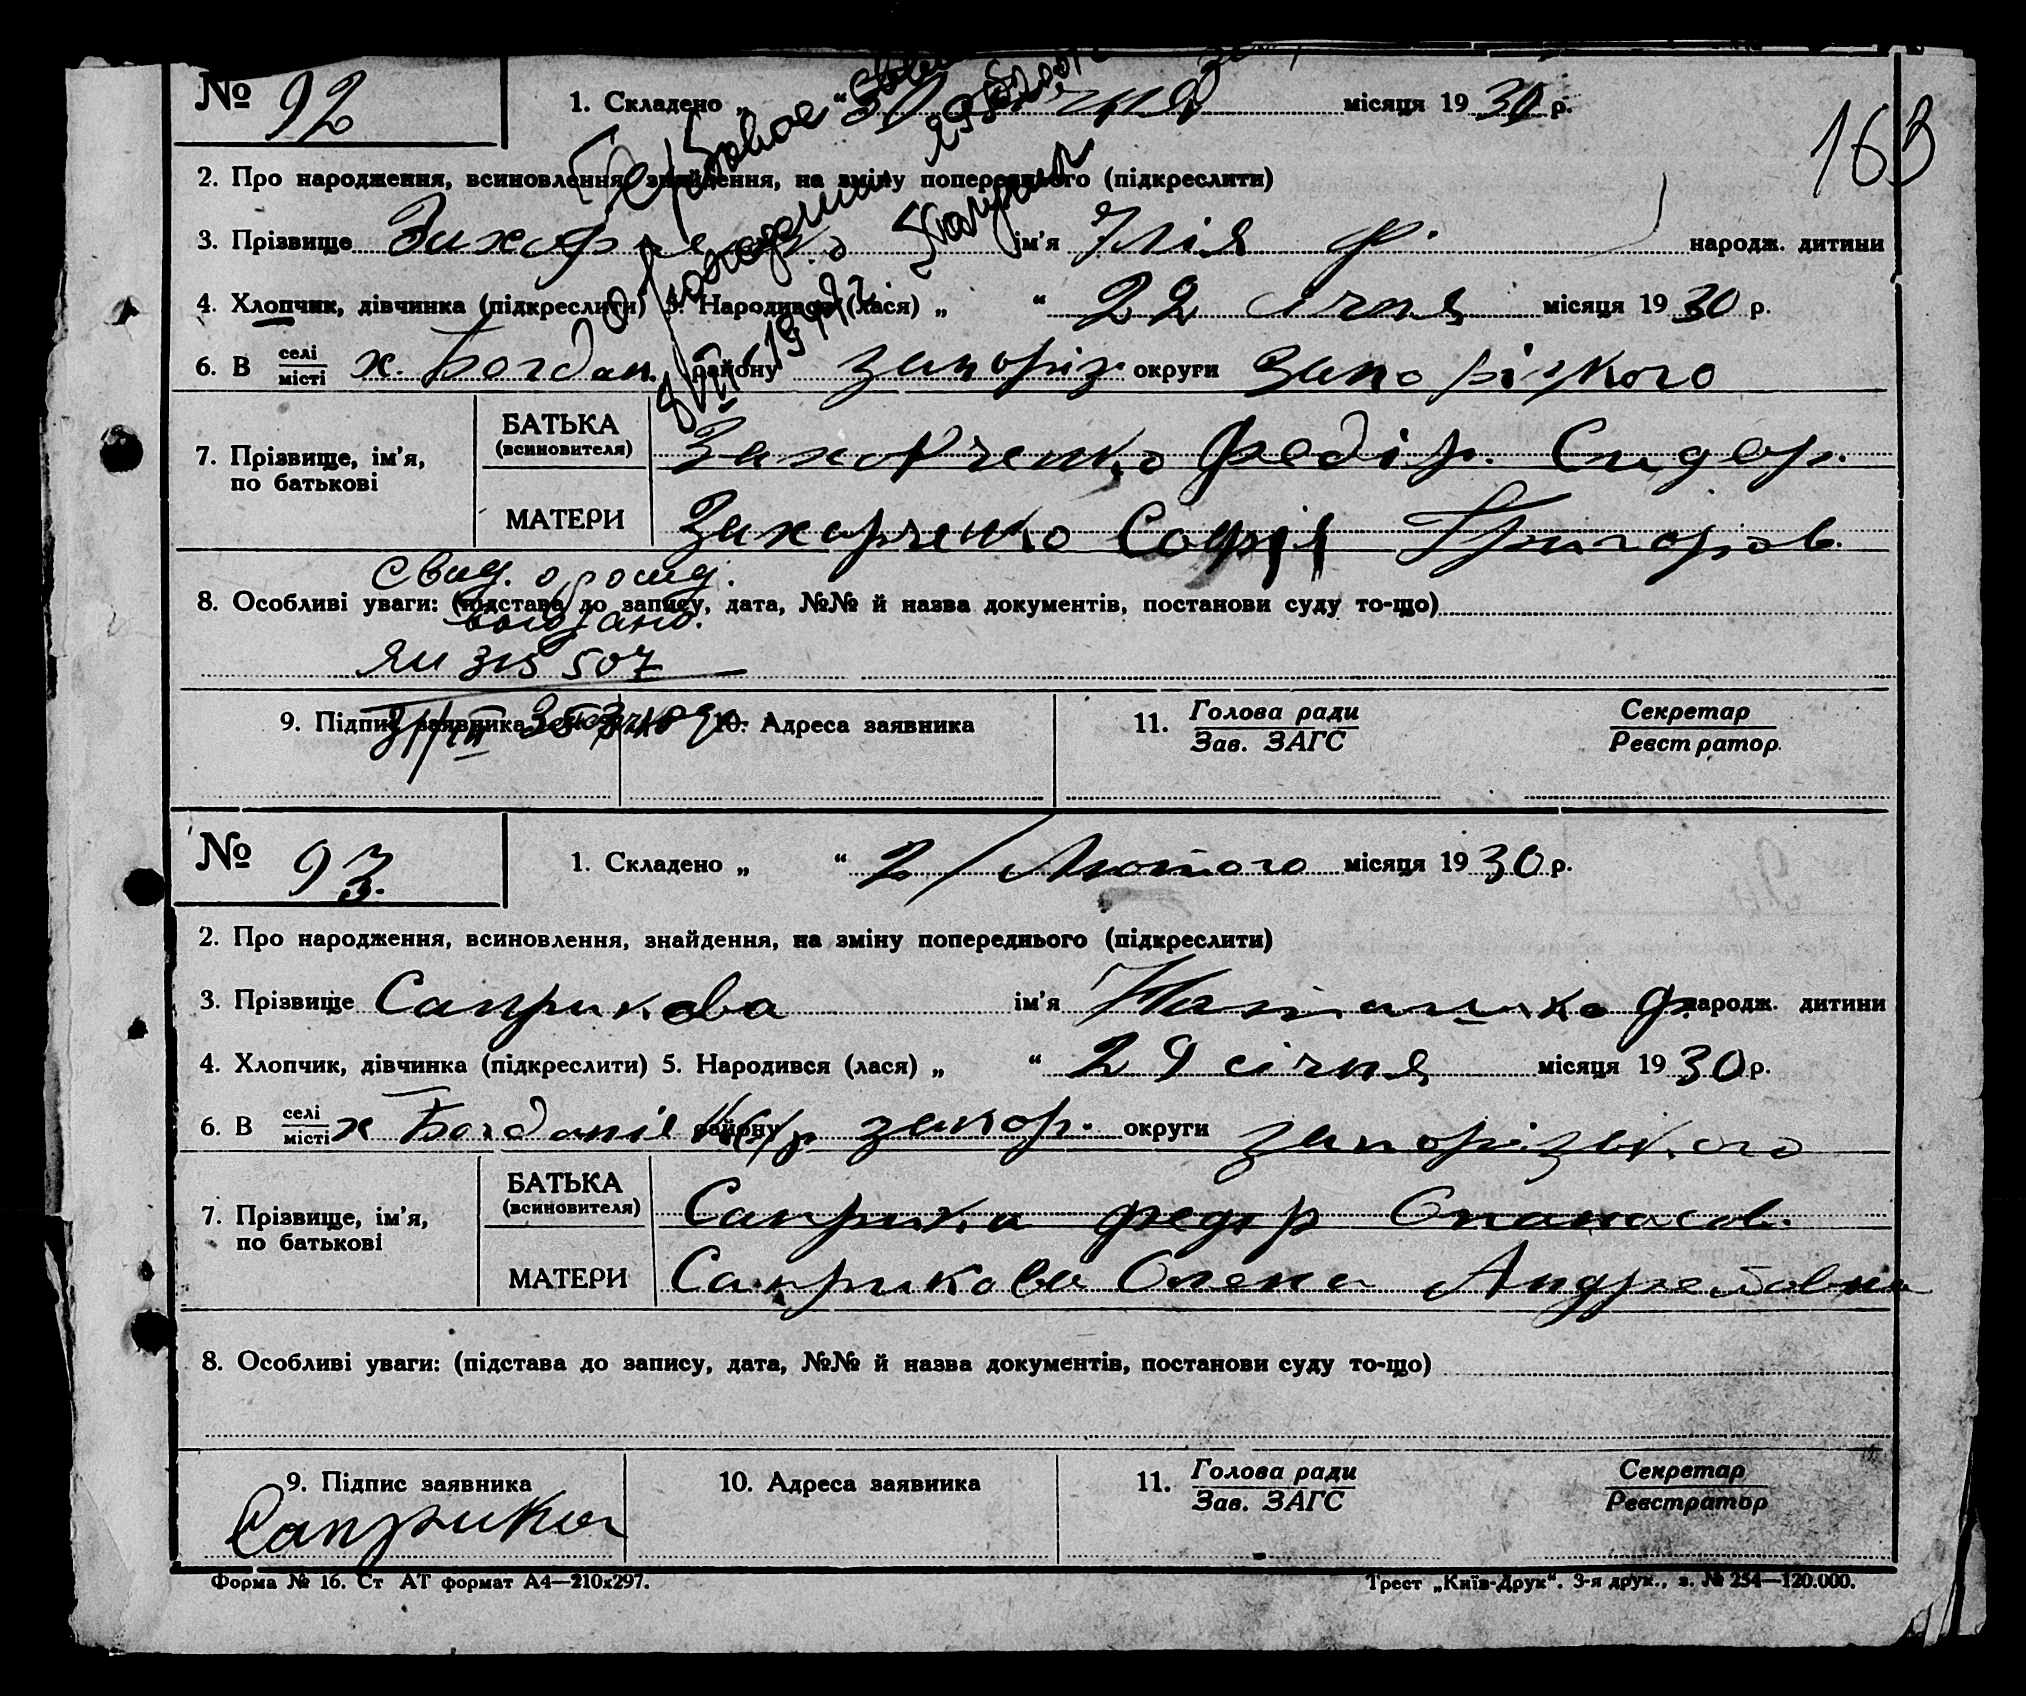 № 92 1. Складено „ “ січня місяця 1930 р.
163
2. Про народження, всиновлення, знайдення, на зміну попереднього (підкреслити)
3. Прізвище Захарченко ім'я Ілія Ф. народж. дитини
4. Хлопчик, дівчинка (підкреслити) 5. Народився (лася) „ “ 22 січня місяця 1930 р.
6. В селі/місті х. Богдан. району запоріз. округи Запорізкого
7. Прізвище, ім'я, по батькові БАТЬКА (всиновителя) Захарченко Федір Сидор.
МАТЕРИ Захарченко Софія Григоров.
Свид. о рожд.
8. Особливі уваги: (підстава до запису, дата, №№ й назва документів, постанови суду то-що)
выдано.
ЯИ 315507
9. Підпис заявника 10. Адреса заявника 11. Голова ради/Зав. ЗАГС Секретар/Реєстратор
№ 93. 1. Складено „ “ 2/Лютого місяця 1930 р.
2. Про народження, всиновлення, знайдення, на зміну попереднього (підкреслити)
3. Прізвище Саприкова ім'я Ф. народж. дитини
4. Хлопчик, дівчинка (підкреслити) 5. Народився (лася) „ “ 29 січня місяця 1930 р.
6. В селі/місті х Богданів району запор. округи запорізького
7. Прізвище, ім'я, по батькові БАТЬКА (всиновителя) Саприка Федор Опанасов.
МАТЕРИ Саприкова Олена Андрейовна
8. Особливі уваги: (підстава до запису, дата, №№ й назва документів, постанови суду то-що)
9. Підпис заявника 10. Адреса заявника 11. Голова ради/Зав. ЗАГС Секретар/Реєстратор
Саприка
Форма № 16. Ст АТ формат А4—210х297. Трест „Київ-Друк“. 3-я друк., з. № 254—120.000.